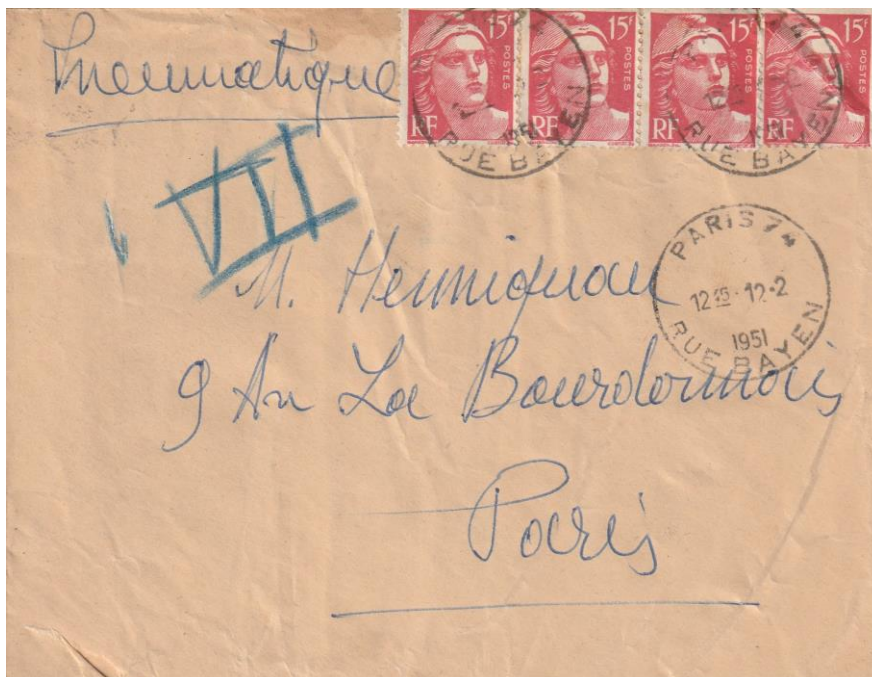 Pneumatique
15F POSTES RF
15F POSTES RF
15F POSTES RF
15F POSTES RF
1951
RUE BAYEN
RUE BAYEN
VII
PARIS 74
12 15 · 12 · 2
1951
RUE BAYEN
M.
9 Av La Bourdonnais
Paris